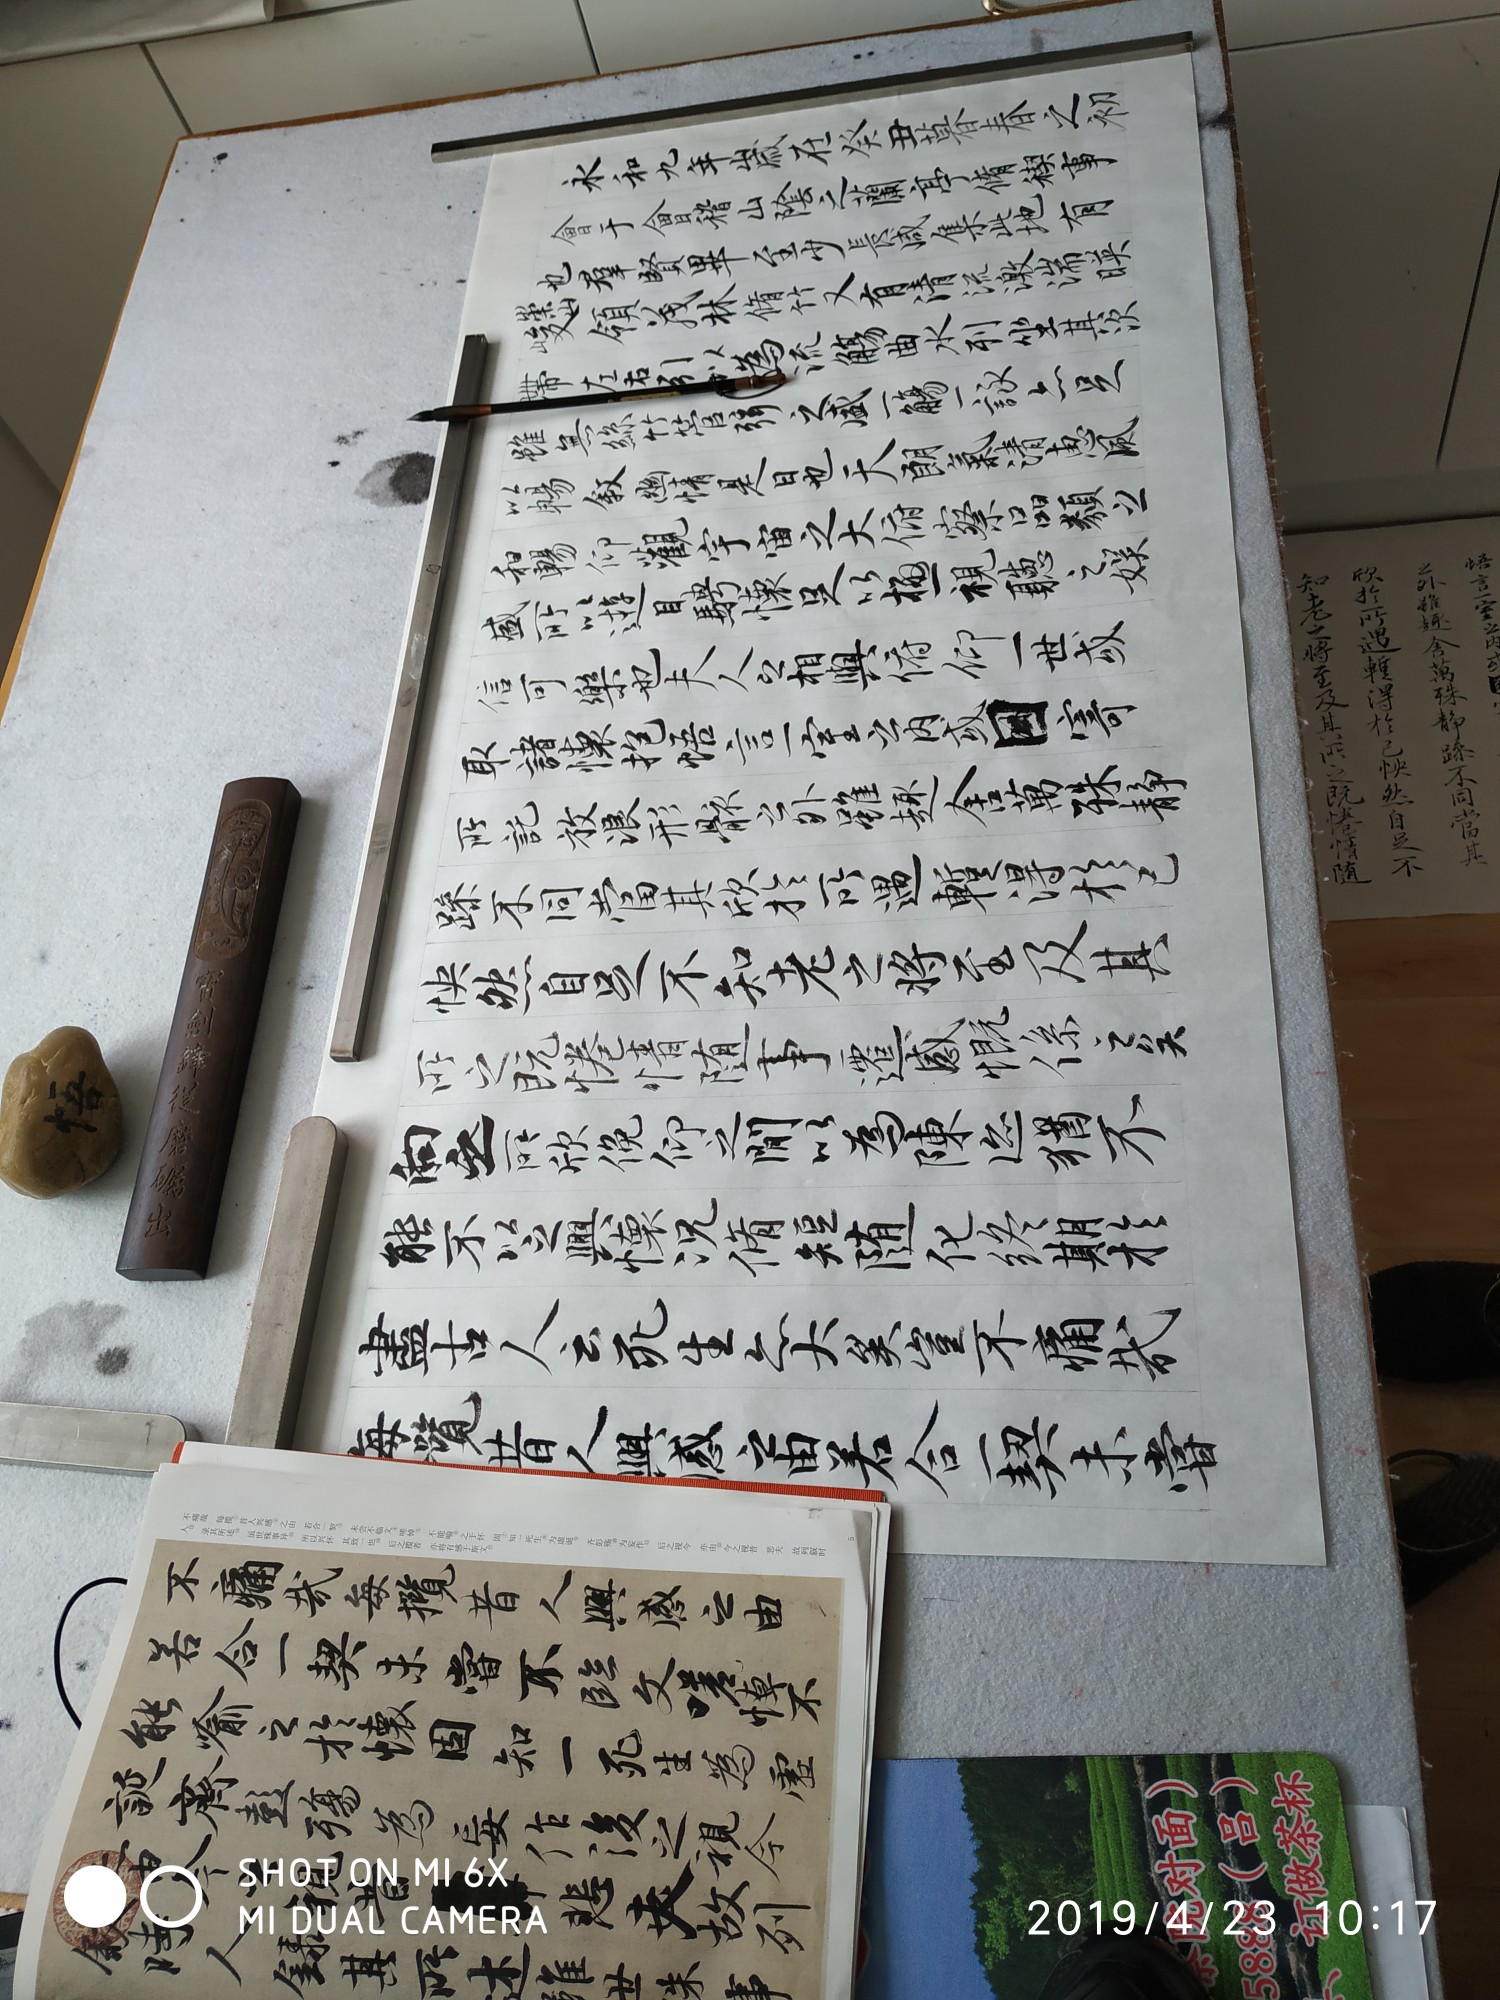 永和九年歲在癸丑暮春之初
會于會稽山陰之蘭亭脩禊事
也群賢畢至少長咸集此地有
崇山峻領茂林脩竹又有清流激湍暎
帶左右引以為流觴曲水列坐其次
雖無絲竹管弦之盛一觴一詠亦足
以暢敘幽情是日也天朗氣清惠風
和暢仰觀宇宙之大俯察品類之
盛所以遊目騁懷足以極視聽之娛
信可樂也夫人之相與俯仰一世或
取諸懷抱悟言一室之內或因寄
所託放浪形骸之外雖趣舍萬殊靜
躁不同當其欣於所遇暫得於己
快然自足不知老之將至及其
所之既惓情隨事遷感慨係之矣
向之所欣俛仰之間以為陳迹猶不
能不以之興懷況脩短隨化終期於
盡古人云死生亦大矣豈不痛哉
每攬昔人興感之由若合一契未嘗
悟言一室之內或
之外雖趣舍萬殊靜躁不同當其
欣於所遇暫得於己快然自足不
知老之將至及其所之既惓情隨
寶劍鋒從磨礪出
悟
不痛哉每攬昔人興感之由
若合一契未嘗不臨文嗟悼不
能喻之於懷固知一死生為虛
誕齊彭殤為妄作後之視今
悲夫故列
敘時人錄其所述雖世殊事
院对面）
588（吕）
、订做茶杯
SHOT ON MI 6X
MI DUAL CAMERA
2019/4/23 10:17